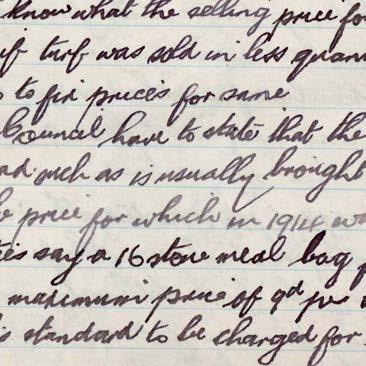 know what the selling price fo
if turf was sold in less quan
to fix prices for same
Council have to state that the
such as is usually brought
price for which in 1914 wa
say a 16 stone meal bag
maximum price of 9d per
standard to be charged for